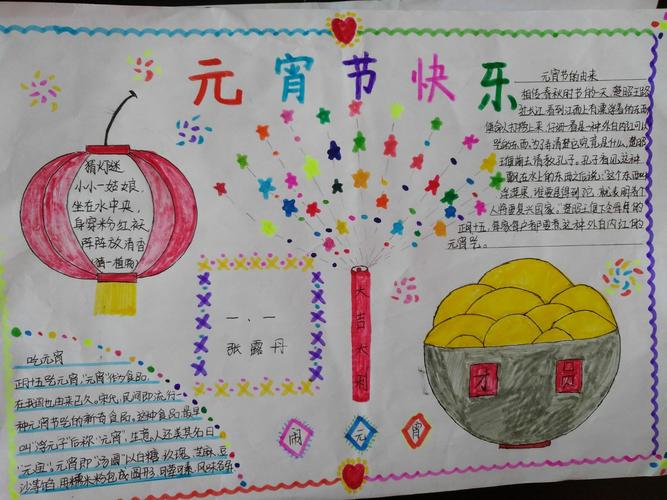 元宵节快乐
元宵节的由来
相传春秋时节的一天,楚昭王路
过大江,看到江面上有漂浮着的东西,
使命人打捞上来,仔细一看是一种外白内红可以
吃的东西,为了弄清楚它究竟是什么,楚昭
王派人前去请教孔子。孔子看见这种
飘在水上的东西之后说:“这个东西叫
浮萍果,谁要是得到它,就表明这个
人将要复兴国家。”楚昭王便下令每年的
正月十五,每家每户都要煮这种外白内红的
元宵吃。
猜灯谜
小小一姑娘,
坐在水中央,
身穿粉红袄,
阵阵放清香
(猜一植物)
一、一
张露丹
大吉大利
才
闹
元
宵
吃元宵
正月十五吃元宵,“元宵”作为食品,
在我国也由来已久。宋代,民间即流行一
种元宵节吃的新奇食品。这种食品,最早
叫“浮元子”后称“元宵”,生意人还美其名曰
“元宝”。元宵即“汤圆”以白糖、玫瑰、芝麻、豆
沙等 用糯米粉包成圆形,可荤可素,风味各异